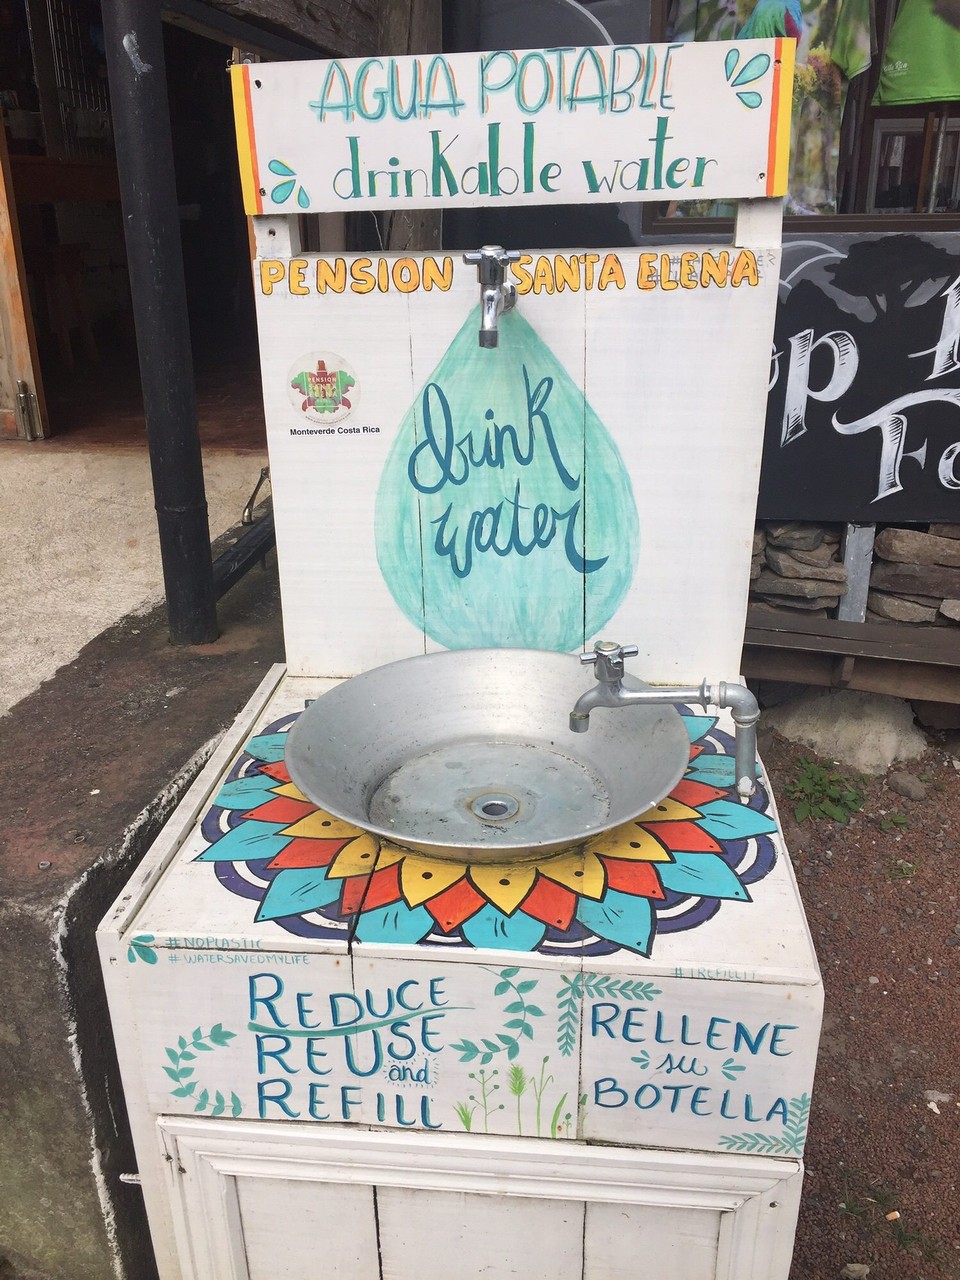 AGUA POTABLE
drinkable water
PENSION SANTA ELENA
PENSION
SANTA
ELENA
Monteverde Costa Rica
drink
water
#NOPLASTIC
#WATERSAVEDMYLIFE
#IREFILLIT
REDUCE
REUSE
and
REFILL
RELLENE
su
BOTELLA
op
Fo